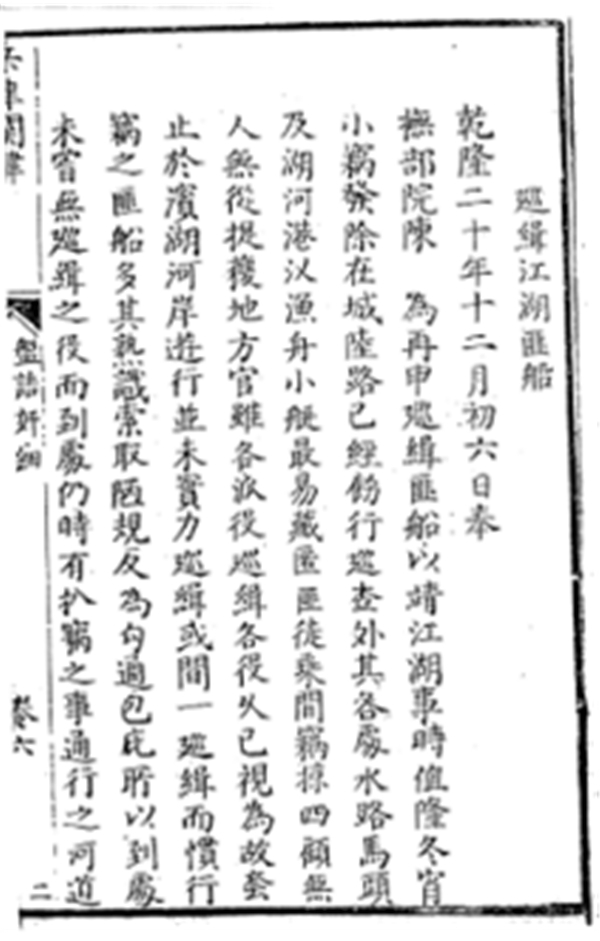 巡緝江湖匪船
乾隆二十年十二月初六日奉
撫部院陳　為再申巡緝匪船以靖江湖事時值隆冬宵
小竊發除在城陸路已經飭行巡查外其各處水路馬頭
及湖河港汊漁舟小艇最易藏匿匪徒乘間竊掠四顧無
人無從捉獲地方官雖各派役巡緝各役久已視為故套
止於濱湖河岸遊行並未實力巡緝或間一巡緝而慣行
竊之匪船多其熟識索取陋規反為勾通包庇所以到處
未嘗無巡緝之役而到處仍時有扒竊之事通行之河道
盤詰奸細
卷六
二